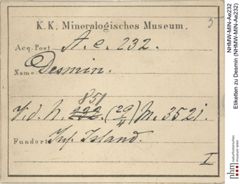 K. K. Mineralogisches Museum.
5
Acq. Post. A. e. 232.
Name Desmin.
851
M. 352i
Fundort Island.
I
NHMW-MIN-Ae232
Etiketten zu Desmin (NHMW-MIN-Ae232)
nhm